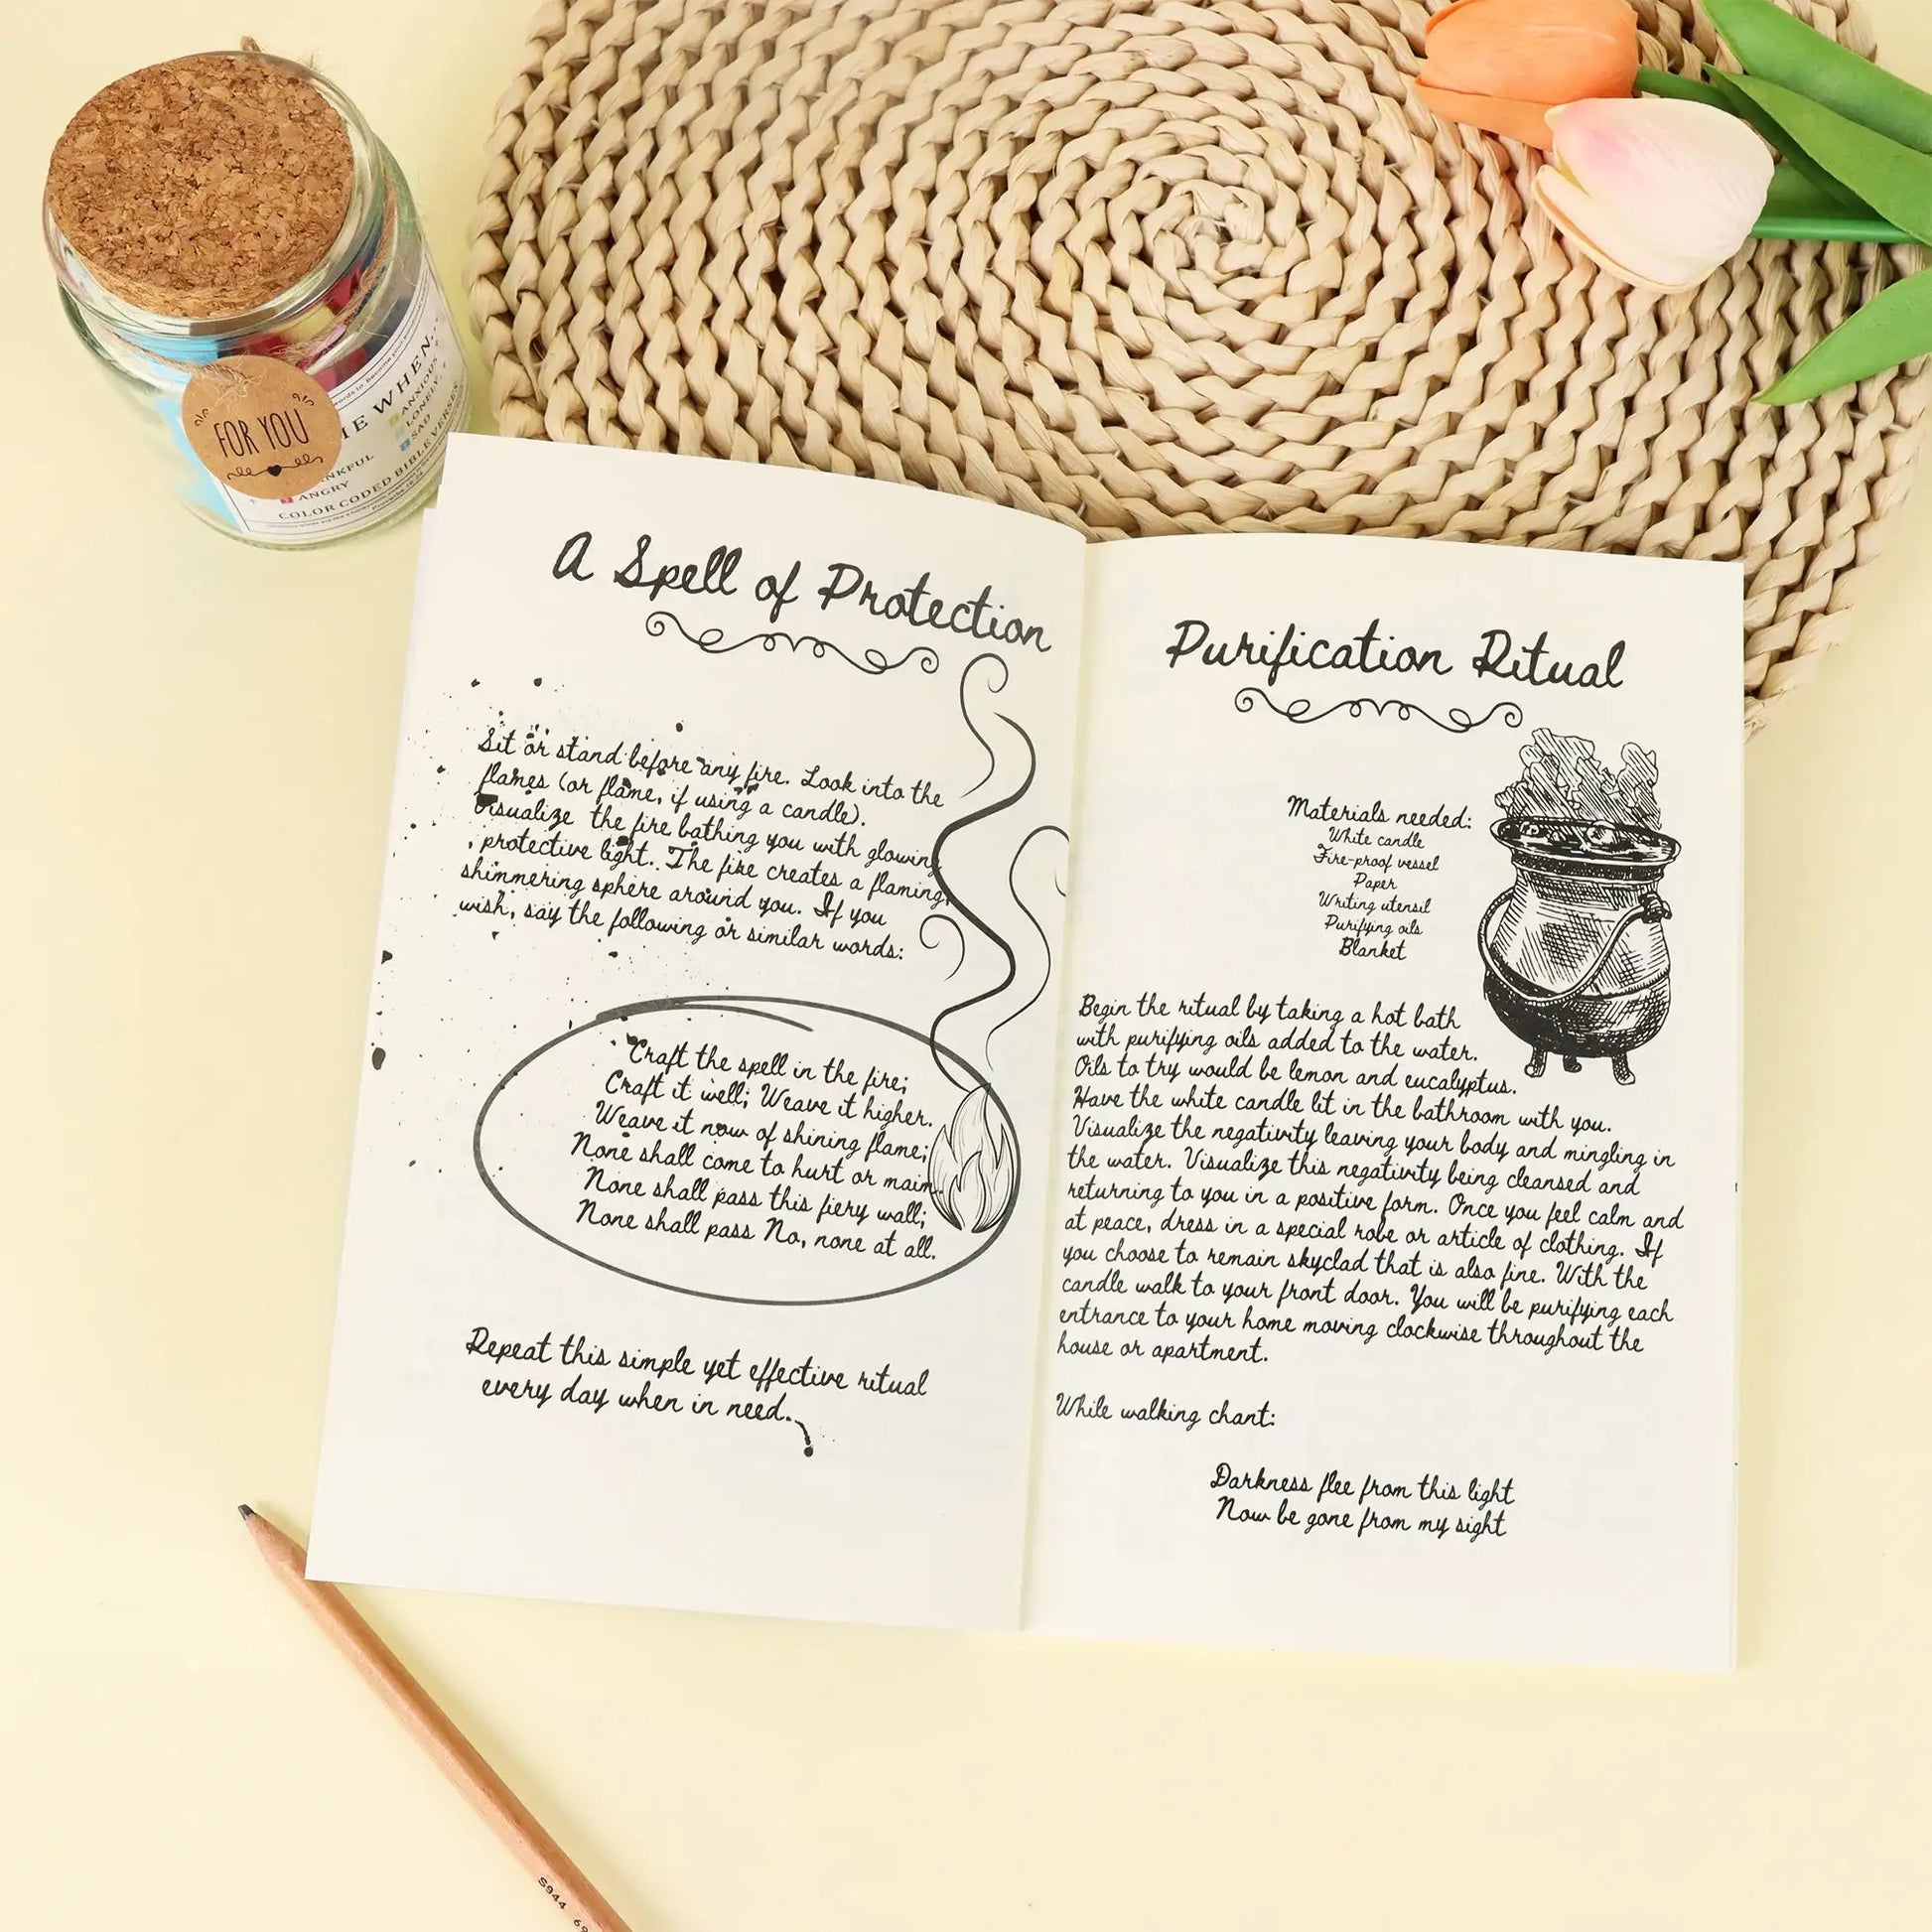 FOR YOU
E WHEN
ANXIOUS
LONELY
SAD
ANGRY
COLOR CODED BIBLE VERSES
A Spell of Protection
Sit or stand before any fire. Look into the
flames (or flame, if using a candle).
Visualize the fire bathing you with glowing
, protective light. The fire creates a flaming,
shimmering sphere around you. If you
wish, say the following or similar words:
Craft the spell in the fire;
Craft it well; Weave it higher.
Weave it now of shining flame;
None shall come to hurt or maim.
None shall pass this fiery wall;
None shall pass No, none at all.
Repeat this simple yet effective ritual
every day when in need.
Purification Ritual
Materials needed:
White candle
Fire-proof vessel
Paper
Writing utensil
Purifying oils
Blanket
Begin the ritual by taking a hot bath
with purifying oils added to the water.
Oils to try would be lemon and eucalyptus.
Have the white candle lit in the bathroom with you.
Visualize the negativity leaving your body and mingling in
the water. Visualize this negativity being cleansed and
returning to you in a positive form. Once you feel calm and
at peace, dress in a special robe or article of clothing. If
you choose to remain skyclad that is also fine. With the
candle walk to your front door. You will be purifying each
entrance to your home moving clockwise throughout the
house or apartment.
While walking chant:
Darkness flee from this light
Now be gone from my sight
S944 69